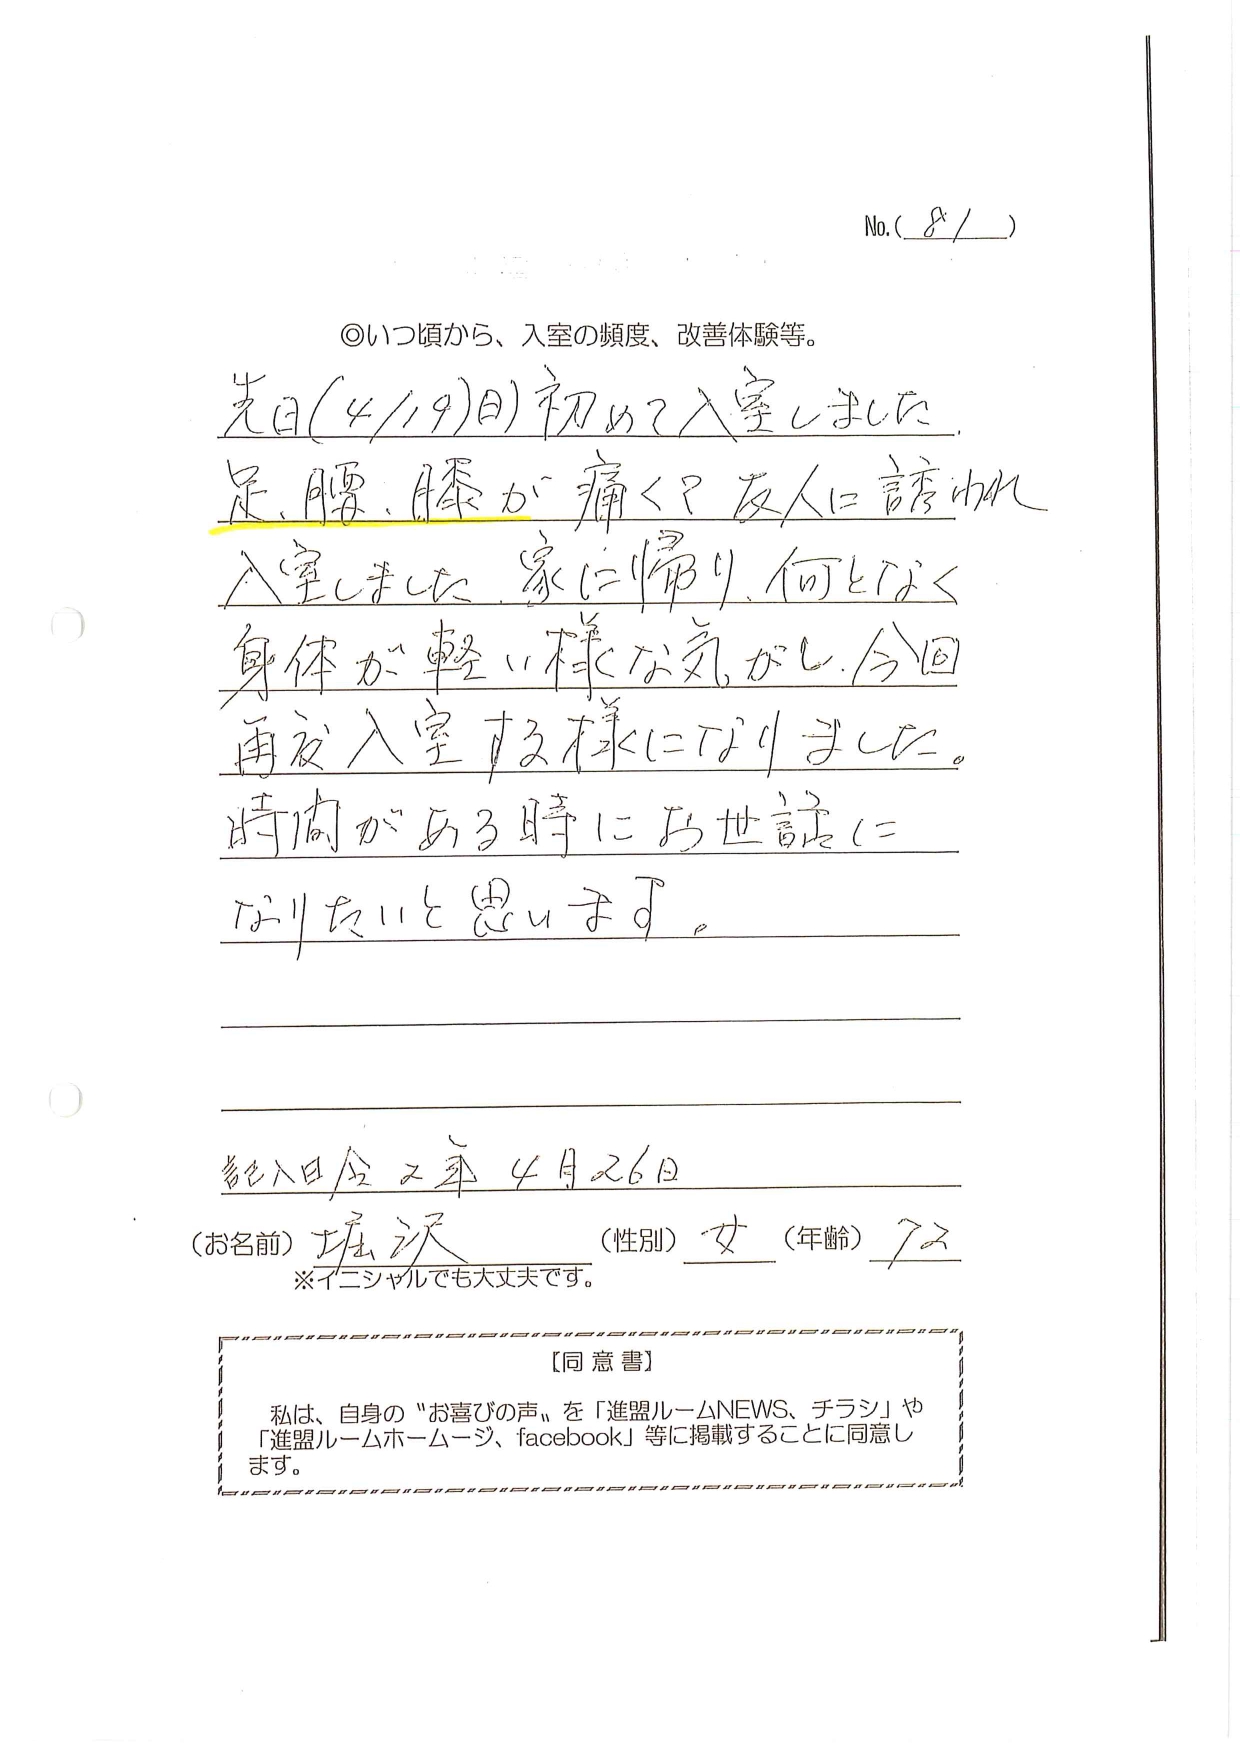 No.(81)
◎いつ頃から、入室の頻度、改善体験等。
先日(4/19)日)初めて入室しました.
足、腰、膝が痛くて友人に誘われ
入室しました.家に帰り、何となく
身体が軽い様な気がし、今回
再度入室する様になりました。
時間がある時にお世話に
なりたいと思います。
記入日令2年4月26日
(お名前)堀沢 (性別)女 (年齢)72
※イニシャルでも大丈夫です。
【同意書】
私は、自身の〝お喜びの声〟を「進盟ルームNEWS、チラシ」や
「進盟ルームホームージ、facebook」等に掲載することに同意し
ます。